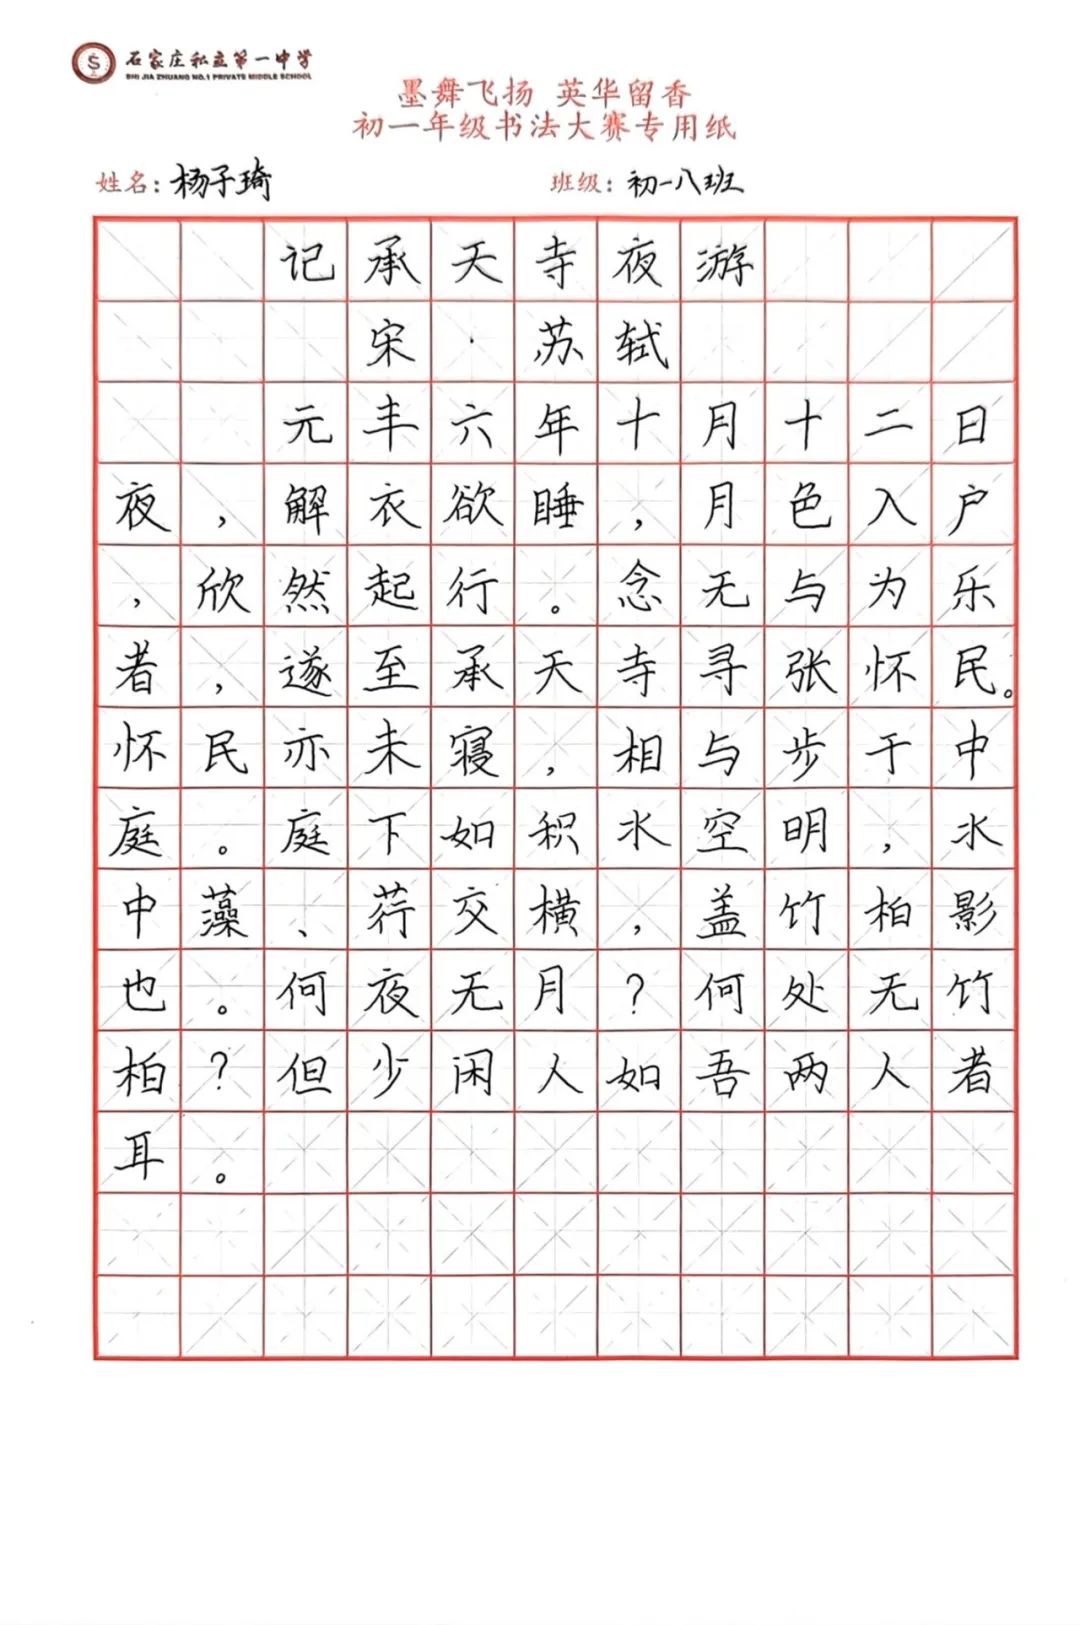 石家庄私立第一中学
SHI JIA ZHUANG NO.1 PRIVATE MIDDLE SCHOOL
墨舞飞扬 英华留香
初一年级书法大赛专用纸
姓名：杨子琦 班级：初一八班
记承天寺夜游
宋·苏轼
元丰六年十月十二日
夜，解衣欲睡，月色入户
，欣然起行。念无与为乐
者，遂至承天寺寻张怀民。
怀民亦未寝，相与步于中
庭。庭下如积水空明，水
中藻、荇交横，盖竹柏影
也。何夜无月？何处无竹
柏？但少闲人如吾两人者
耳。